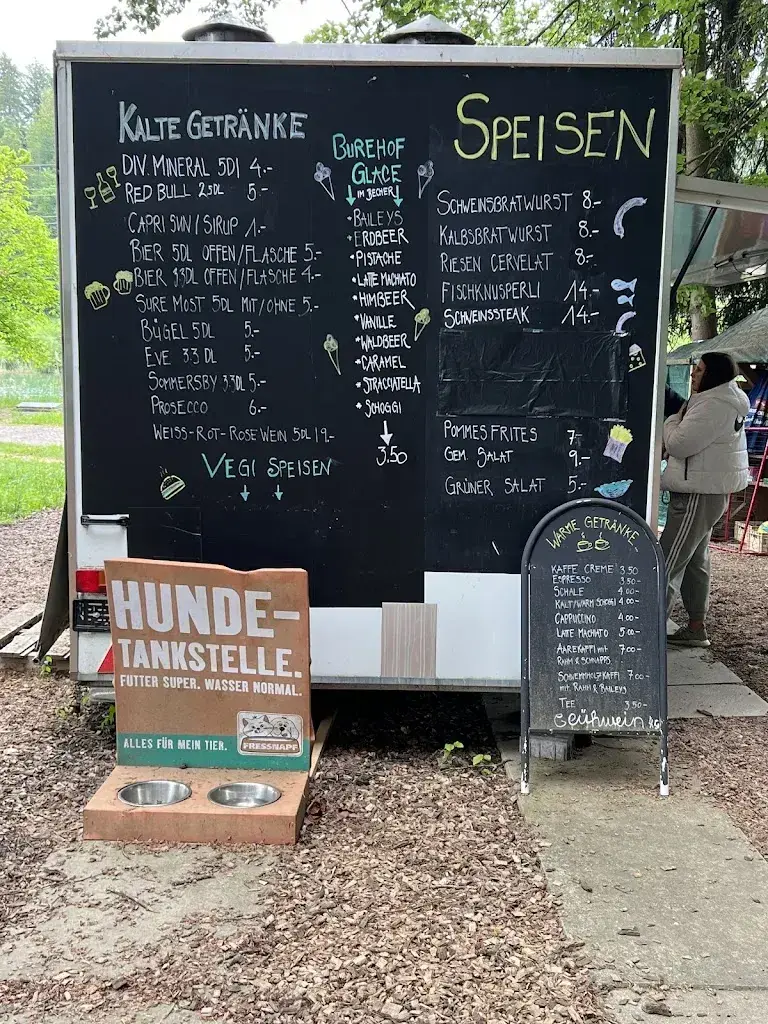 KALTE GETRÄNKE
DIV. MINERAL 5Dl 4.-
RED BULL 25DL 5.-
CAPRI SUN / SIRUP 1.-
BIER 5DL OFFEN/FLASCHE 5.-
BIER 33DL OFFEN/FLASCHE 4.-
SURE MOST 5DL MIT/OHNE 5.-
BÜGEL 5DL 5.-
EVE 33DL 5.-
SOMMERSBY 33DL 5.-
PROSECCO 6.-
WEISS-ROT-ROSE WEIN 5DL 19.-
VEGI SPEISEN
BUREHOF
GLACE
IM BECHER
*BAILEYS
*ERDBEER
*PISTACHE
*LATTE MACHIATO
*HIMBEER
*VANILLE
*WALDBEER
*CARAMEL
*STRACCIATELLA
*SCHOGGI
3.50
SPEISEN
SCHWEINSBRATWURST 8.-
KALBSBRATWURST 8.-
RIESEN CERVELAT 8.-
FISCHKNUSPERLI 14.-
SCHWEINSSTEAK 14.-
POMMES FRITES 7.-
GEM. SALAT 9.-
GRÜNER SALAT 5.-
HUNDE-
TANKSTELLE.
FUTTER SUPER. WASSER NORMAL.
ALLES FÜR MEIN TIER.
FRESSNAPF
WARME GETRÄNKE
KAFFE CREME 3.50
ESPRESSO 3.50-
SCHALE 4.00-
KALT/WARM SCHOGGI 4.00-
CAPPUCCINO 4.00-
LATTE MACHIATO 5.00-
AAREKAFFI MIT 7.00-
RAHM & SCHNAPPS
SCHWEMMHOLZKAFFI 7.00-
MIT RAHM & BAILEYS
TEE 3.50-